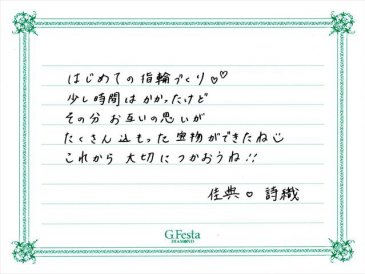 はじめての指輪づくり♡♡
少し時間はかかったけど
その分お互いの思いが
たくさん込もった宝物ができたね☺
これから大切につかおうね!!
佳典♡詩織
G.Festa
DIAMOND